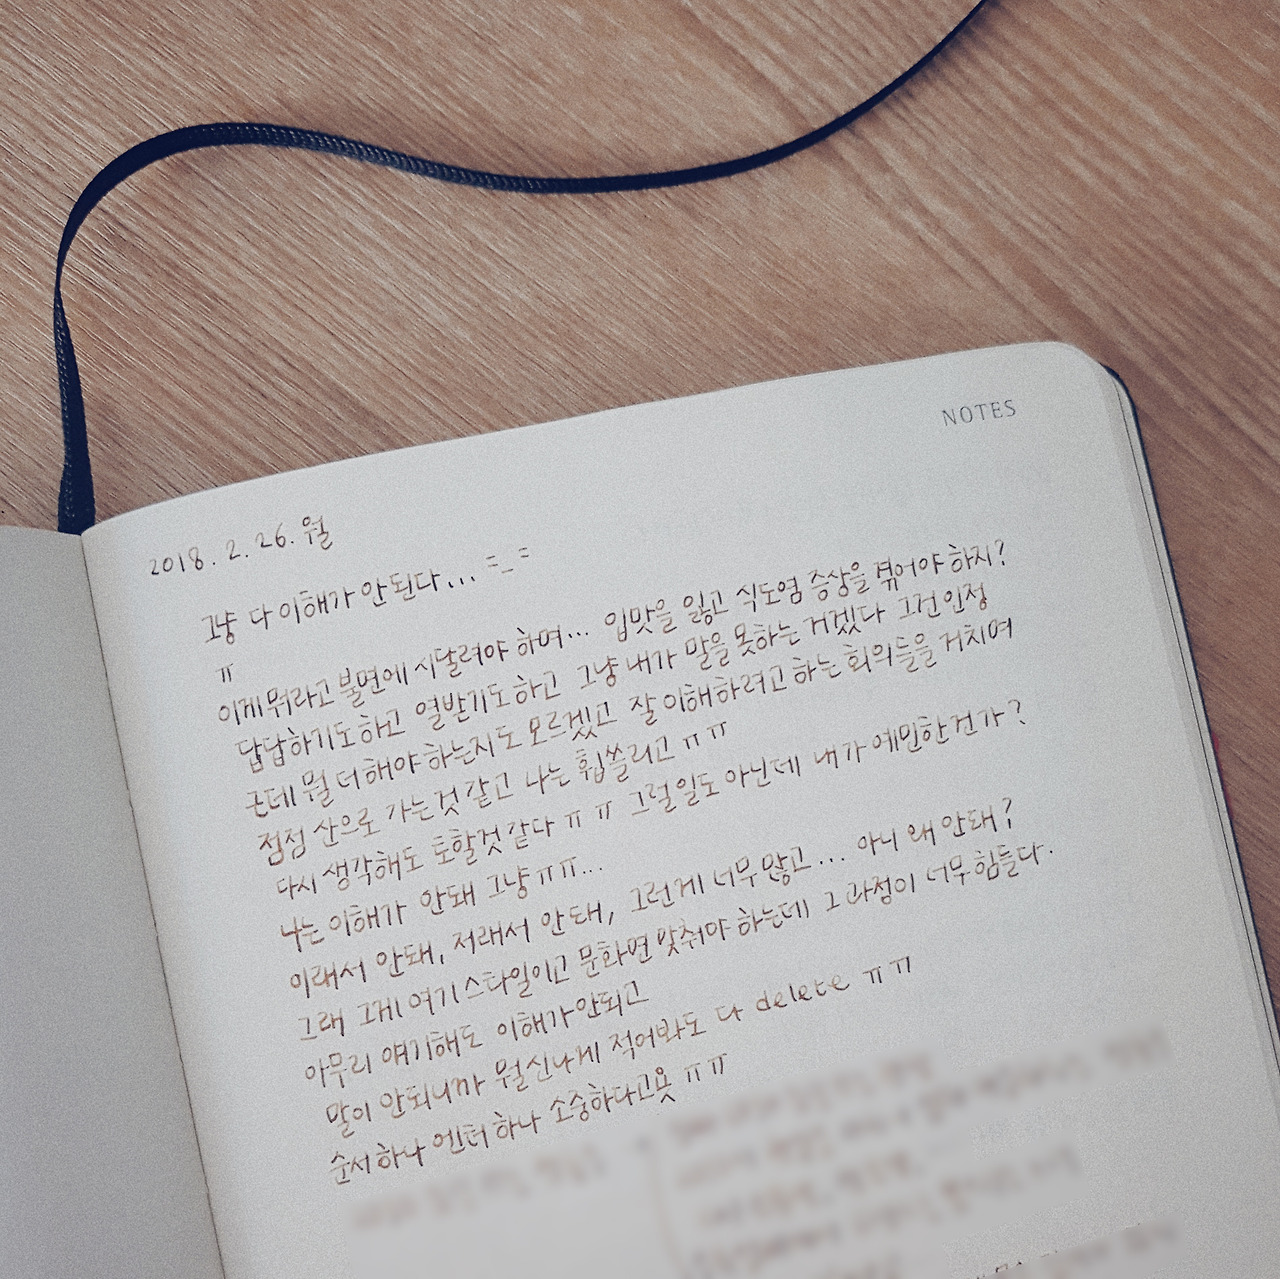 NOTES
2018. 2. 26. 월
그냥 다 이해가 안된다... =_=
ㅠ
이게 뭐라고 불면에 시달려야 하며... 입맛을 잃고 식도염 증상을 겪어야 하지?
답답하기도하고 열받기도하고 그냥 내가 말을 못하는거겠다 그건 인정
근데 뭘 더해야 하는지도 모르겠고 잘 이해하려고 하는 회의들을 거치며
점점 산으로 가는것 같고 나는 휩쓸리고 ㅠㅠ
다시 생각해도 토할것 같다 ㅠㅠ 그럴일도 아닌데 내가 예민한건가?
나는 이해가 안돼 그냥 ㅠㅠ...
이래서 안돼, 저래서 안돼, 그런게 너무 많고... 아니 왜 안돼?
그래 그게 여기 스타일이고 문화면 맞춰야 하는데 그 과정이 너무 힘들다.
아무리 얘기해도 이해가 안되고
말이 안되니까 뭘 신나게 적어봐도 다 delete ㅠㅠ
순서하나 엔터하나 소중하다고욧 ㅠㅠ